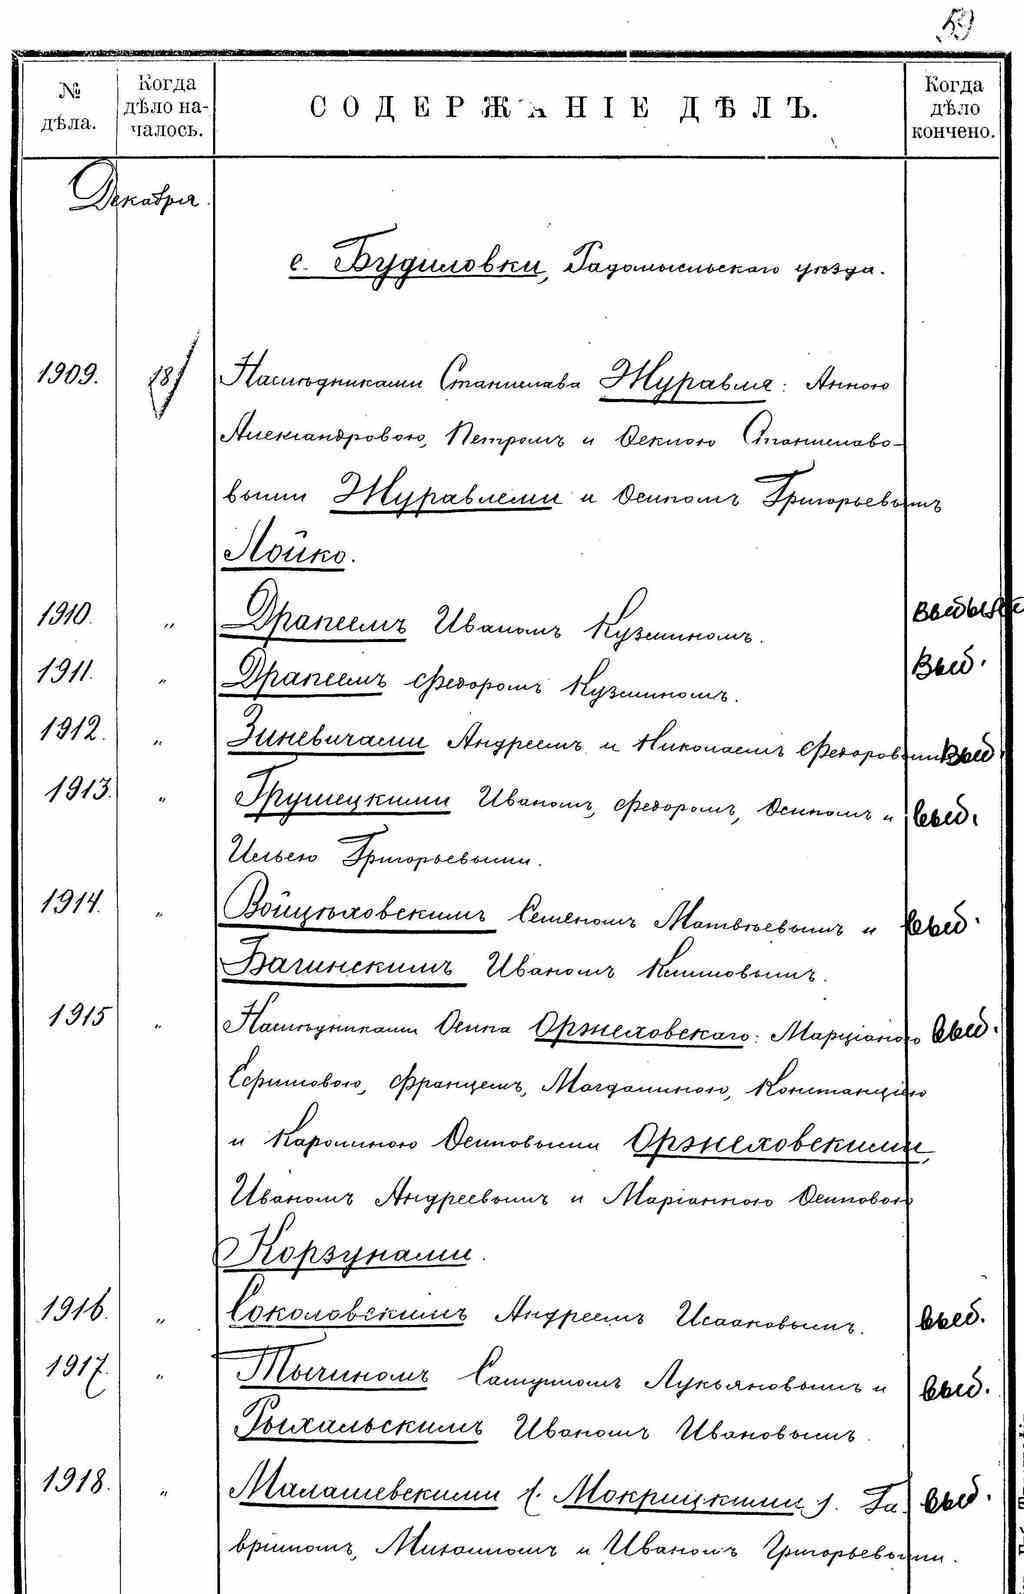 59
№ дѣла.
Когда дѣло на-чалось.
СОДЕРЖАНІЕ ДѢЛЪ.
Когда дѣло кончено.
Декабря.
с. Будиловки, Радомысльскаго уѣзда.
1909. 18 Наслѣдниками Станислава Журавля: Анною
Александровою, Петромъ и Феклою Станиславо-
выми Журавлеми и Осипомъ Григорьевымъ
Лойко.
1910. " Драпеемъ Иваномъ Кузминомъ.
1911. " Драпеемъ Федоромъ Кузминомъ. Выб.
1912. " Зиневичами Андреемъ и Николаемъ Федоровыми Выб.
1913. " Грушецкими Иваномъ, Федоромъ, Осипомъ и выб.
Ильею Григорьевыми.
1914. " Войцѣховскимъ Семеномъ Матвѣевымъ и выб.
Багинскимъ Иваномъ Климовымъ.
1915 " Наслѣдниками Осипа Оржеховскаго: Марціаною выб.
Ефимовою, Францемъ, Магдалиною, Констанціею
и Каролиною Осиповыми Оржеховскими,
Иваномъ Андреевымъ и Маріанною Осиповою
Корзунами.
1916. " Соколовскимъ Андреемъ Исааковымъ. выб.
1917. " Тычиномъ Самуиломъ Лукьяновымъ и выб.
Рыхальскимъ Иваномъ Ивановымъ.
1918. " Малашевскими (. Мокрицкими). Га- выб.
вріиломъ, Михаиломъ и Иваномъ Григорьевыми.